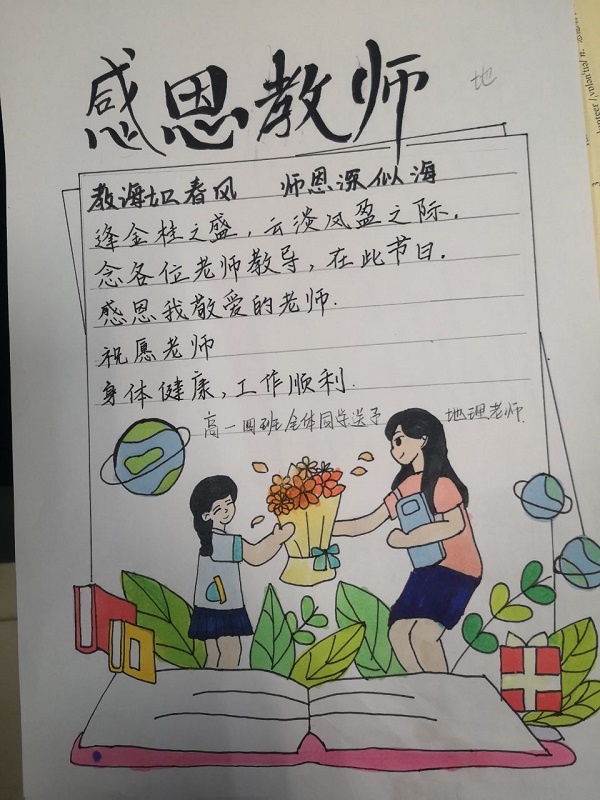 感恩教师
地
教海如春风 师恩深似海
逢金桂之盛，云淡风盈之际，
念各位老师教导，在此节日．
感恩我敬爱的老师．
祝愿老师
身体健康，工作顺利．
高一四班全体同学送予 地理老师．